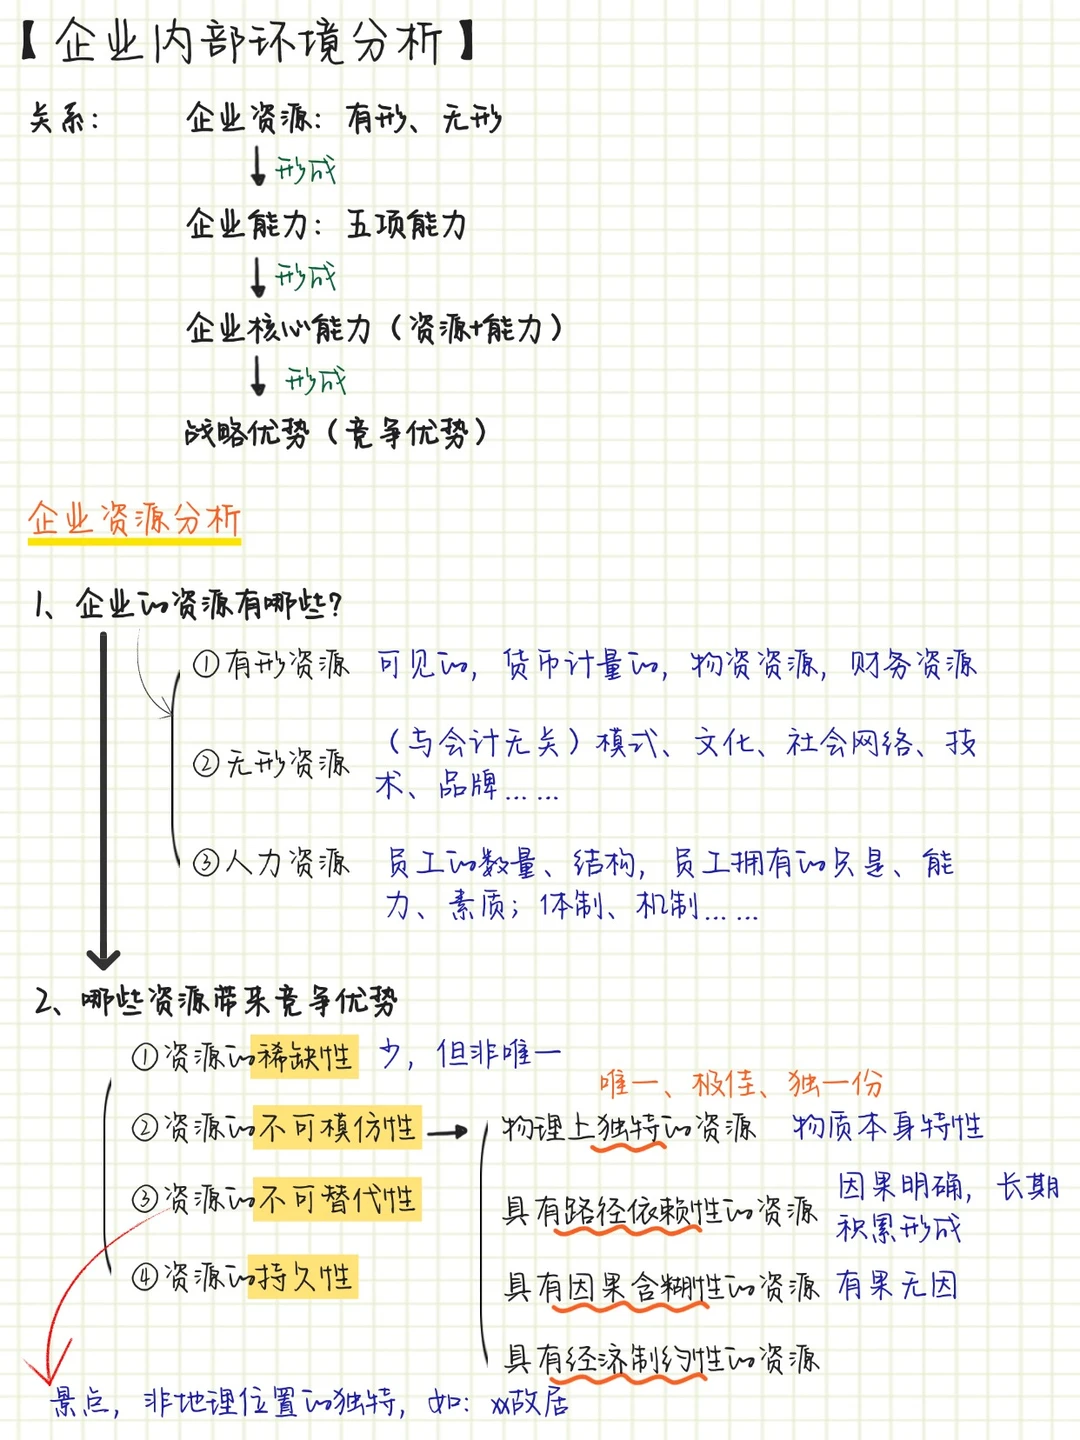 【企业内部环境分析】
关系: 企业资源: 有形、无形
形成
企业能力: 五项能力
形成
企业核心能力（资源+能力）
形成
战略优势（竞争优势）
企业资源分析
1、企业的资源有哪些?
①有形资源 可见的, 货币计量的, 物资资源, 财务资源
②无形资源 （与会计无关）模式、文化、社会网络、技
术、品牌……
③人力资源 员工的数量、结构, 员工拥有的只是、能
力、素质; 体制、机制……
2、哪些资源带来竞争优势
①资源的稀缺性 少, 但非唯一
唯一、极佳、独一份
②资源的不可模仿性 物理上独特的资源 物质本身特性
③资源的不可替代性 具有路径依赖性的资源 因果明确, 长期
积累形成
④资源的持久性 具有因果含糊性的资源 有果无因
具有经济制约性的资源
景点, 非地理位置的独特, 如: xx故居